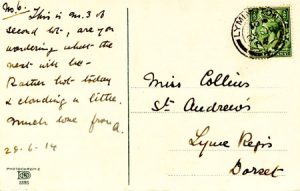 No. 6.
This is no. 3 of
second lot, are you
wondering what the
next will be -
Rather hot today
& clouding a little.
Much love from A.
29-6-14
LYMING
Miss Collins
St. Andrew's
Lyme Regis
Dorset